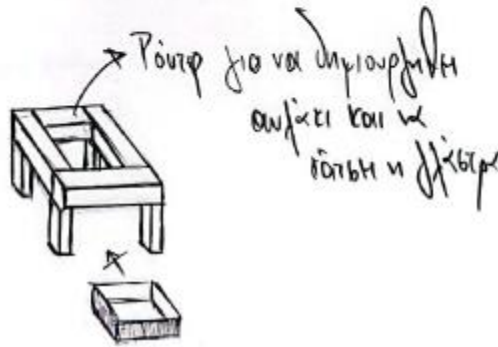 Ρόυτερ για να δημιουργηθεί
αυλάκι και να
κάτσει η γλάστρα